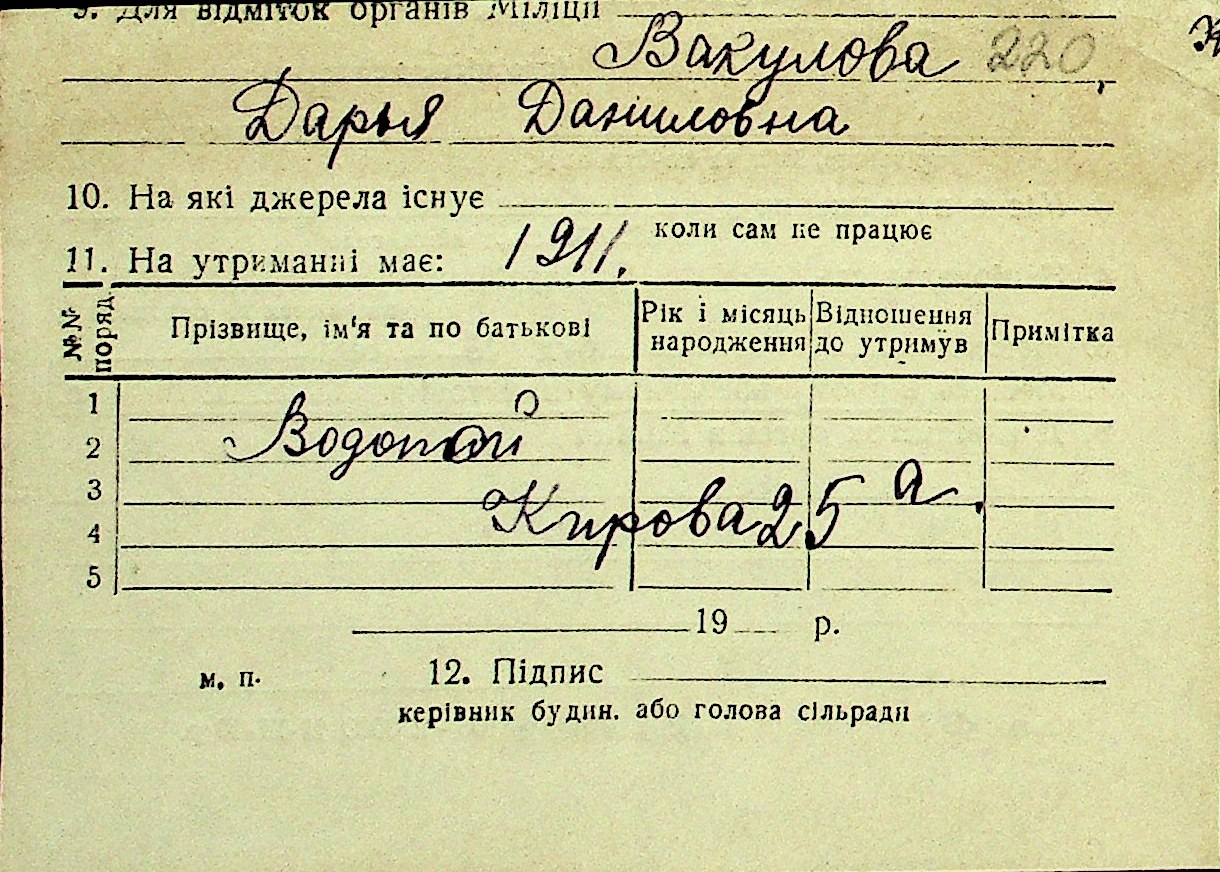 9. Для відміток органів Міліції
Вакулова 220
Дарья Даниловна
10. На які джерела існує
коли сам не працює
11. На утриманні має: 1911.
№№ поряд.
Прізвище, ім'я та по батькові
Рік і місяць народження
Відношення до утримув
Примітка
1
2 Водопой
3
Кирова 25 а.
4
5
19 р.
м. п. 12. Підпис
керівник будин. або голова сільради